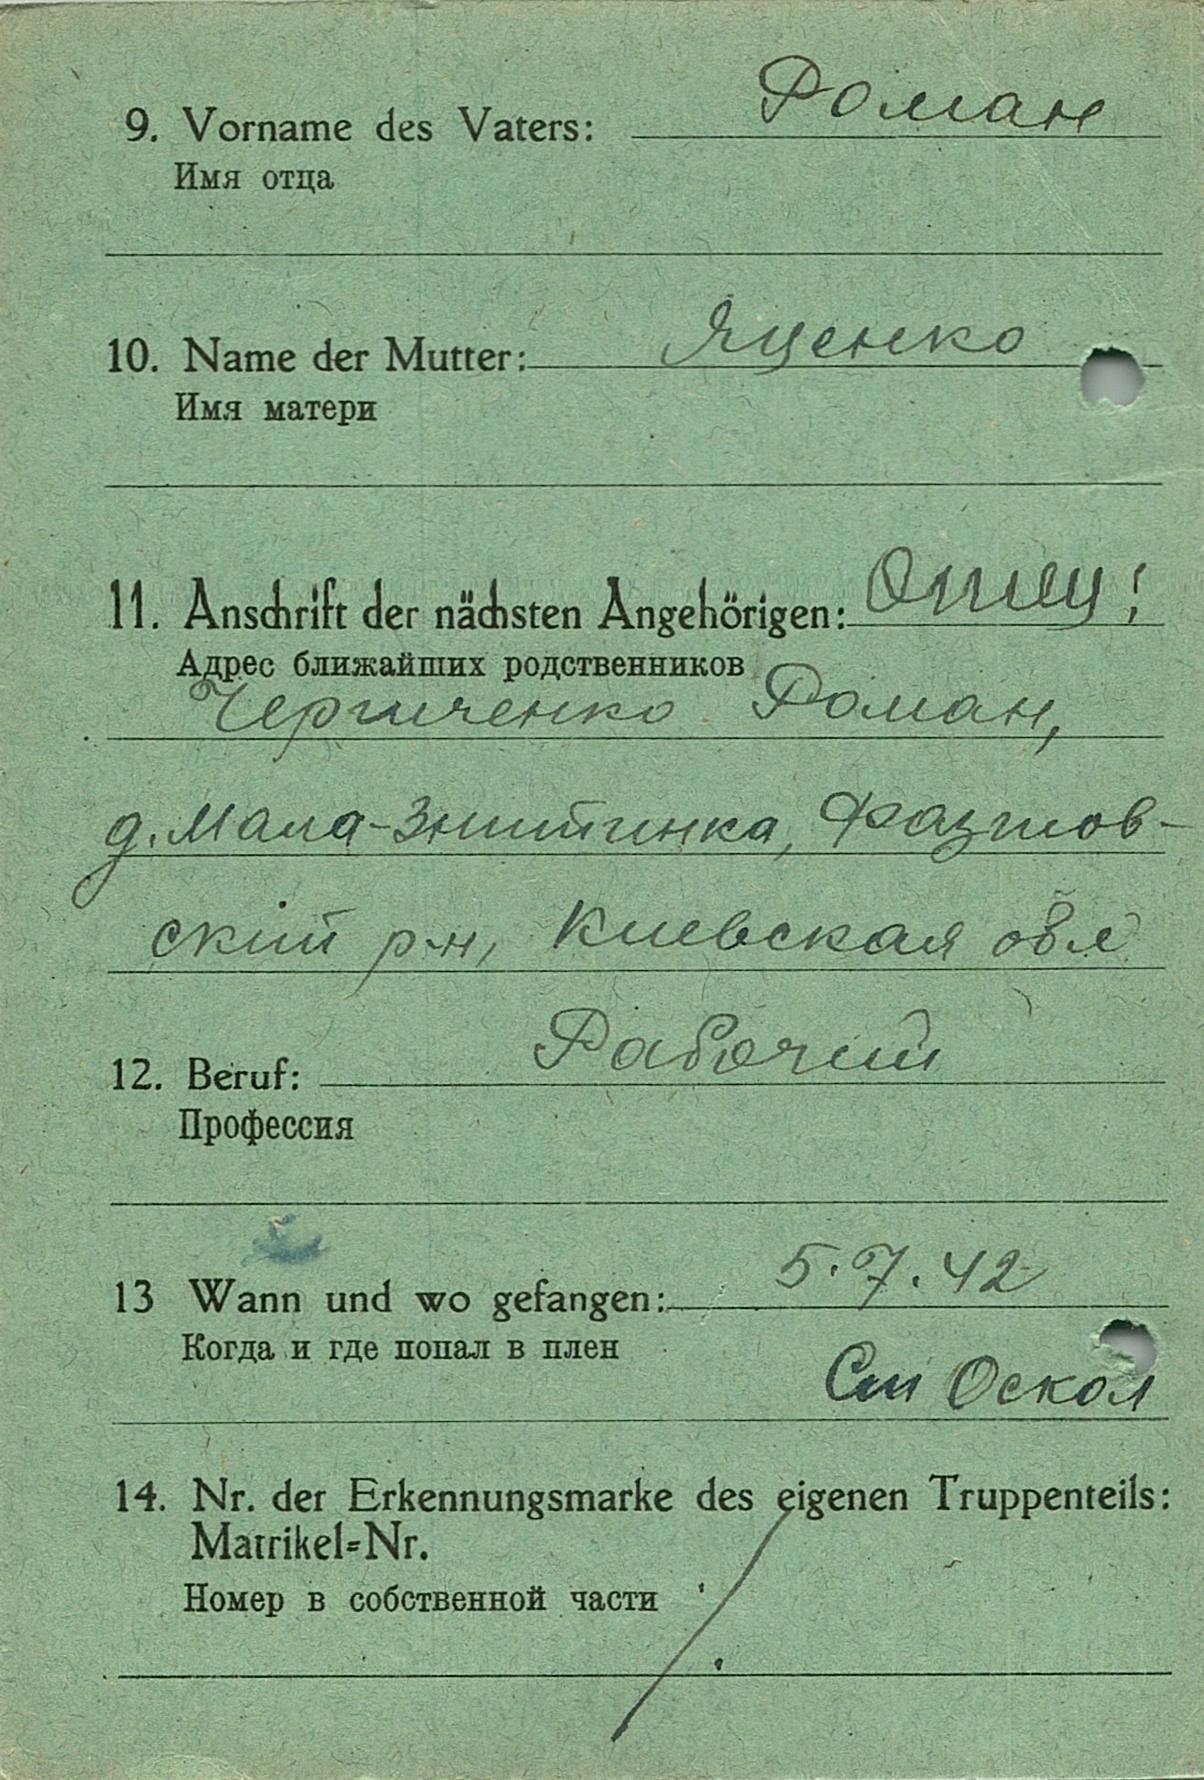 9. Vorname des Vaters: Роман
Имя отца
10. Name der Mutter: Яценко
Имя матери
11. Anschrift der nächsten Angehörigen: Отцу:
Адрес ближайших родственников
Роман,
д. Мала-
ский р-н, Киевская обл
12. Beruf: Рабочий
Профессия
13 Wann und wo gefangen: 5.7.42
Когда и где попал в плен
Ст Оскол
14. Nr. der Erkennungsmarke des eigenen Truppenteils:
Matrikel=Nr.
Номер в собственной части